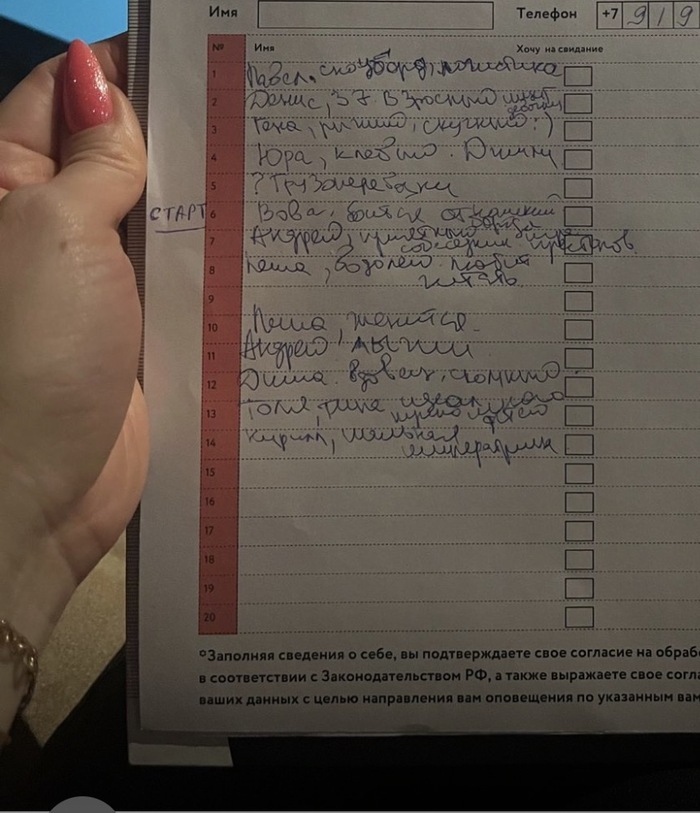 Имя Телефон +7 9 1 9
№ Имя Хочу на свидание
1 Павел, сноуборд, логистика
2 Денис, 37. Взрослый ищет
девочку
3 Гена, лишно, скучно :)
4 Юра, клеймо. Длинн
5 ? Грузоперевозки
СТАРТ 6 Вова. боится отношений
7 Андрей, приятный
собеседник
8 Леша, Водолей. любит
читать
9
10 Леша, женится
11 Андрей, лыжи
12 Дима. Вдовец, скучно
13 Толя, типа
14 Кирилл, шальная
императрица
15
16
17
18
19
20
°Заполняя сведения о себе, вы подтверждаете свое согласие на обраб
в соответствии с Законодательством РФ, а также выражаете свое согла
ваших данных с целью направления вам оповещения по указанным вам